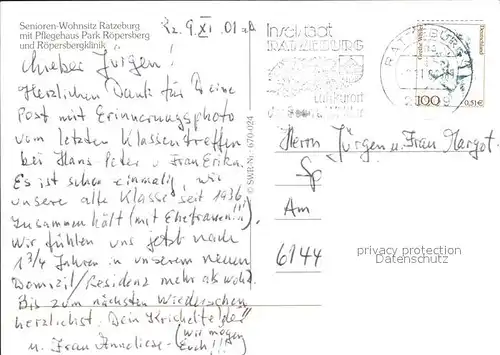 Senioren-Wohnsitz Ratzeburg
mit Pflegehaus Park Röpersberg
und Röpersbergklinik
Rz. 9. XI. 01
Lieber Jürgen!
Herzlichen Dank für Deine
Post mit Erinnerungsphoto
vom letzten Klassentreffen
bei Hans Peter u. Frau Erika.
Es ist schon einmalig, wie
unsere alte Klasse seit 1936
zusammen hält (mit Ehefrauen!!!)
Wir fühlen uns jetzt nach
1 3/4 Jahren in unserem neuen
Domizil/Residenz mehr als wohl.
Bis zum nächsten Wiedersehen
herzlichst. Dein
u. Frau Anneliese - (wir mögen
Euch!!!)
© SWR-Nr. 670-024
Inselstadt
RATZEBURG
Luftkurort
RATZEBURG
Deutschland
100
0,51€
Herrn Jürgen u. Frau Margot
Am
6144
privacy protection
Datenschutz